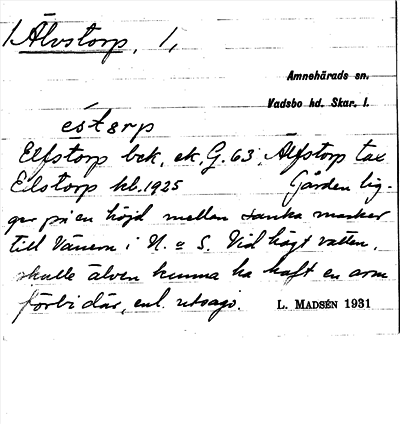 1 Älvstorp, 1,
Amnehärads sn.
Vadsbo hd. Skar. l.
éstərp
Elfstorp bek, ek, G. 63, Älfstorp tax
Elstorp kb. 1925 Gården lig-
ger på en höjd mellan sanka marker
till Vänern i N. o S. Vid högt vatten,
skulle älven kunna ha haft en arm
förbi där, enl. utsago. L. MADSÉN 1931